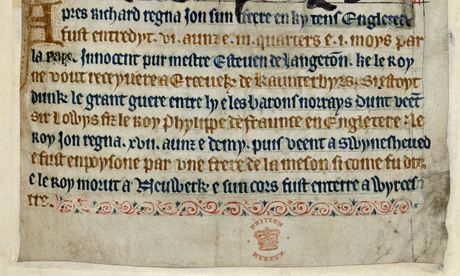 Apres Richard regna Jon sun frere en ky tens Engletere
fust entredyt .vi. aunz e .iii. quarters e .i. moys par
la pape. Innocent pur mestre Esteven de Langeton. ke le Roy
ne vout receyvere a Erceveke de Kaunterbyrs. Si estoyt
dunk le grant guere entre ly e les barons norrays dunt vent
sir Lowys fiz le Roy Phylippe de Fraunce en Engletere: le
Roy Jon regna .xvii. aunz e demy. puis veent a Swynesheved
e fust enpoysone par une frere de la meson si come fu dit
e le Roy morut a Neuwerk e sun cors fust enterre a Wyrces
tre.
BRITISH
MUSEUM